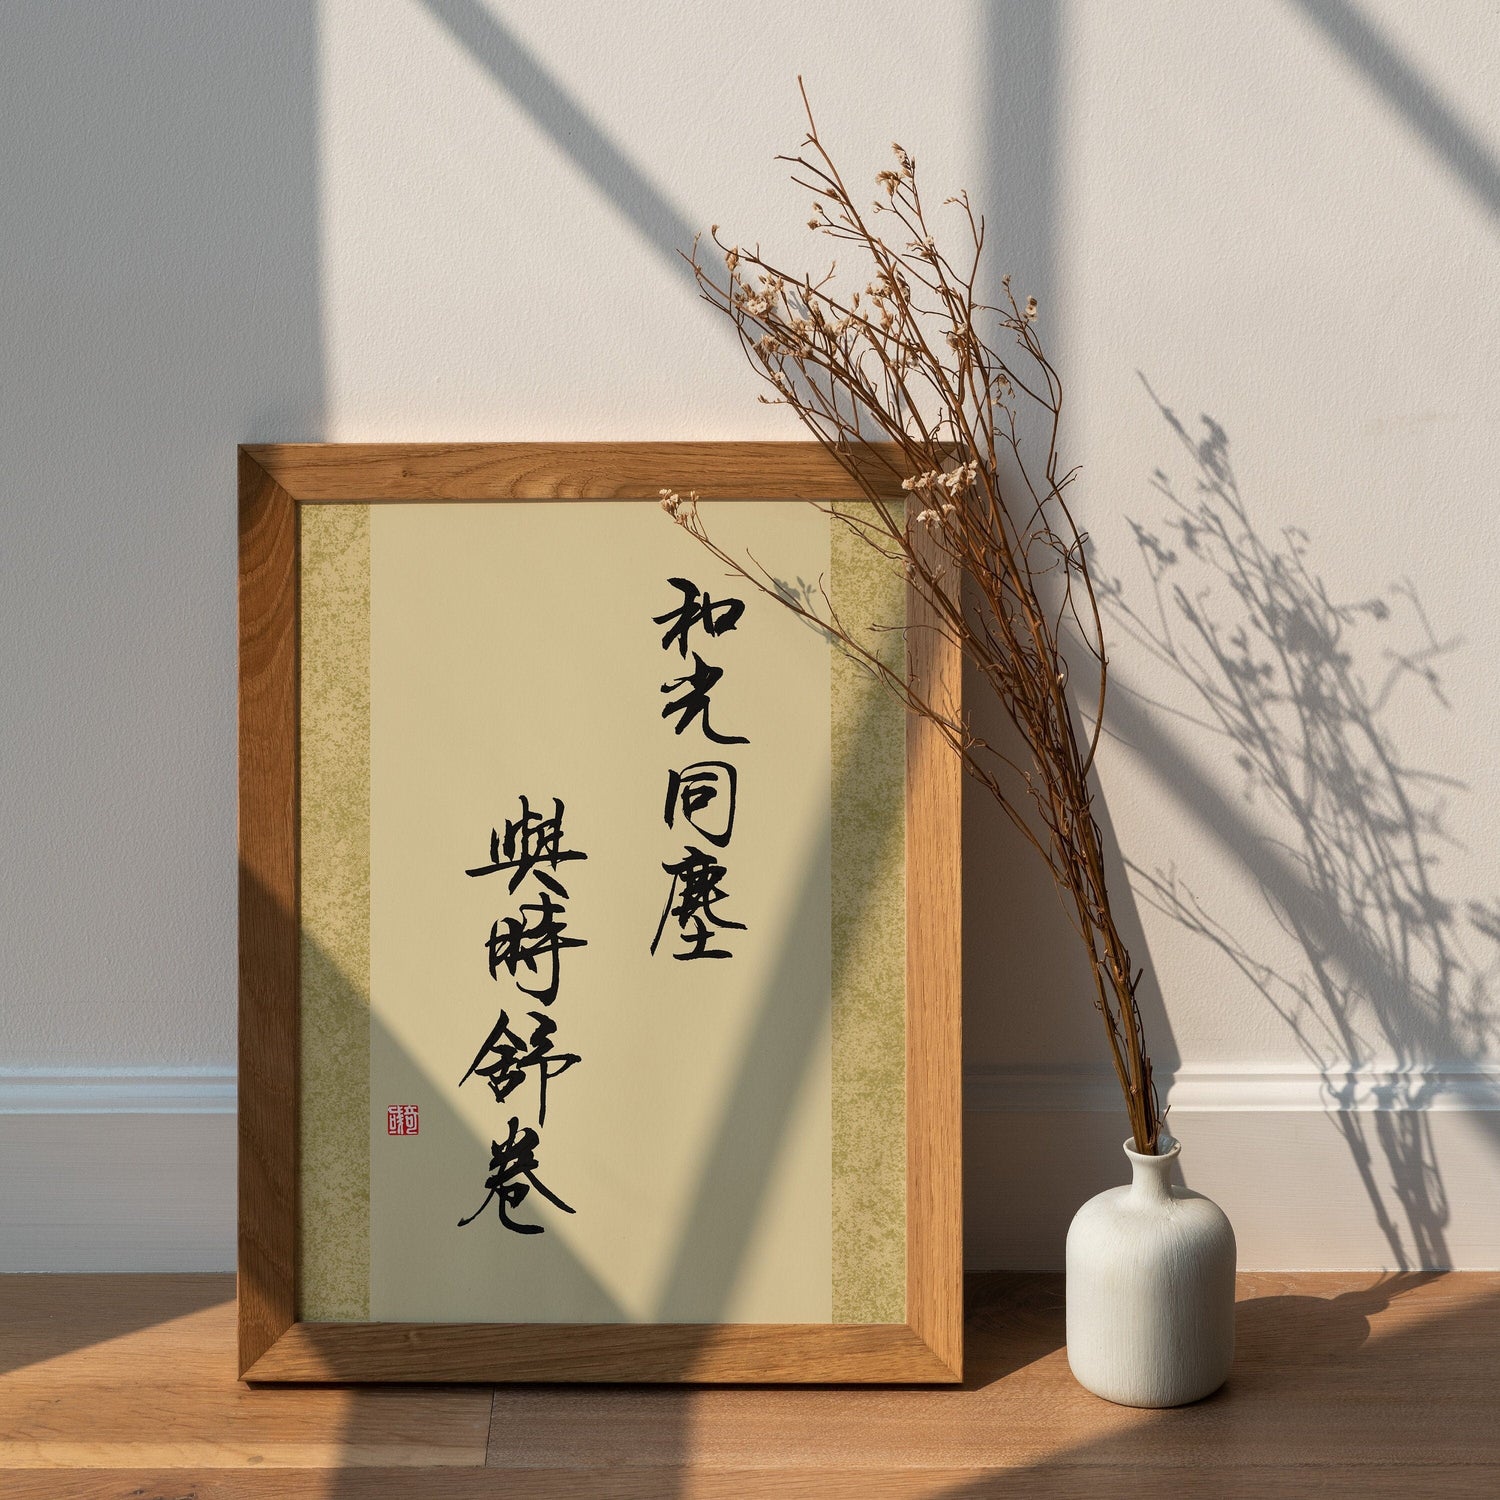 和光同塵
與時舒卷